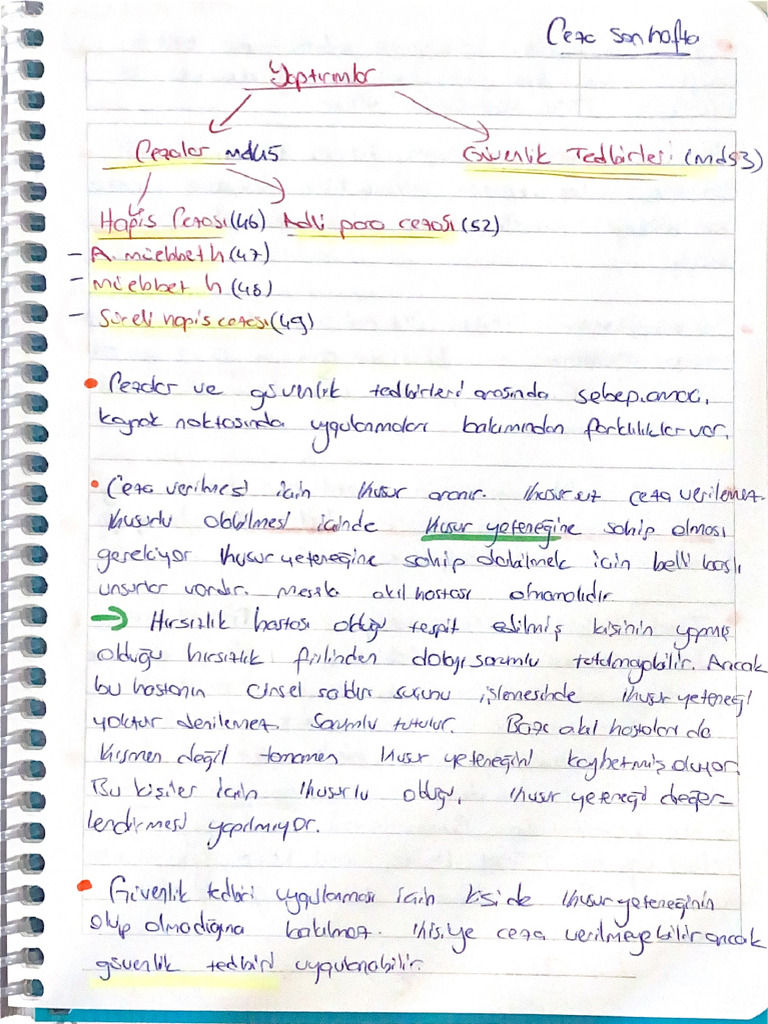 Ceza son hafta
Yaptırımlar
Cezalar md45 Güvenlik Tedbirleri (md53)
Hapis Cezası (46) Adli para cezası (52)
- A. müebbet h (47)
- müebbet h (48)
- Süreli hapis cezası (49)
• Cezalar ve güvenlik tedbirleri arasında sebep, amaç,
kaynak noktasında uygulanmaları bakımından farklılıklar var.
• Ceza verilmesi için kusur aranır. Kusursuz ceza verilemez.
Kusurlu olabilmesi içinde kusur yeteneğine sahip olması
gerekiyor kusur yeteneğine sahip olabilmek için belli başlı
unsurlar vardır. Mesela akıl hastası olmamalıdır.
→ Hırsızlık hastası olduğu tespit edilmiş kişinin yapmış
olduğu hırsızlık fiilinden dolayı sorumlu tutulmayabilir. Ancak
bu hastanın cinsel saldırı suçunu işlemesinde kusur yeteneği
yoktur denilemez. Sorumlu tutulur. Bazı akıl hastaları da
kısmen değil tamamen kusur yeteneğini kaybetmiş oluyor.
Bu kişiler için kusurlu olduğu, kusur yeteneği değer-
lendirmesi yapılmıyor.
• Güvenlik tedbiri uygulanması için kişide kusur yeteneğinin
olup olmadığına bakılmaz. Kişiye ceza verilmeyebilir ancak
güvenlik tedbiri uygulanabilir.